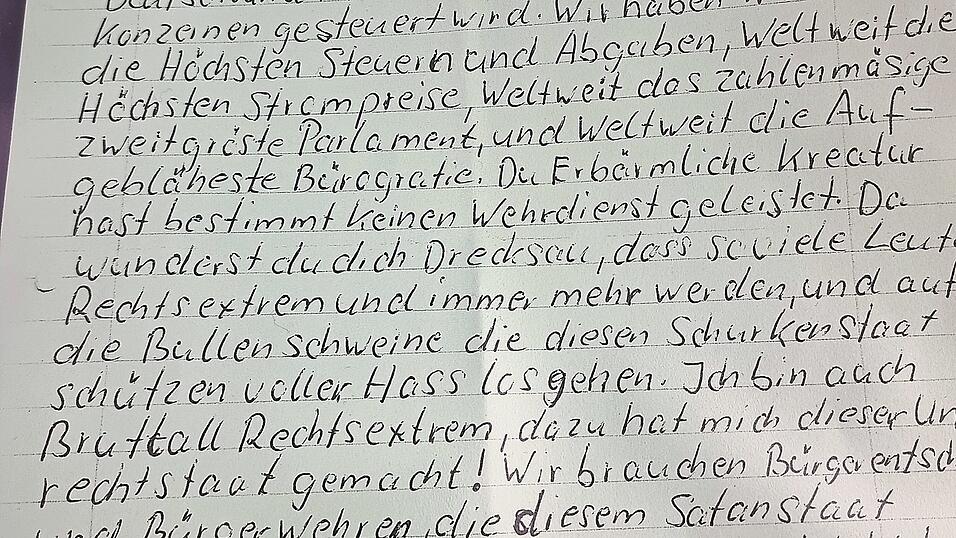 Konzeinen gesteuert wird. Wir haben
die Höchsten Steuern und Abgaben, Weltweit die
Höchsten Strompreise, Weltweit das zahlenmäsige
zweitgröste Parlament, und Weltweit die Auf-
gebläheste Bürogratie. Du Erbärmliche Kreatur
hast bestimmt keinen Wehrdienst geleistet. Da
wunderst du dich Drecksau, dass soviele Leut
Rechtsextrem und immer mehr werden, und auf
die Bullenschweine die diesen Schurkenstaat
schützen voller Hass losgehen. Ich bin auch
Bruttall Rechtsextrem, dazu hat mich dieser Un
rechtstaat gemacht! Wir brauchen Bürgerentsch
und Bürgerwehren, die diesem Satanstaat